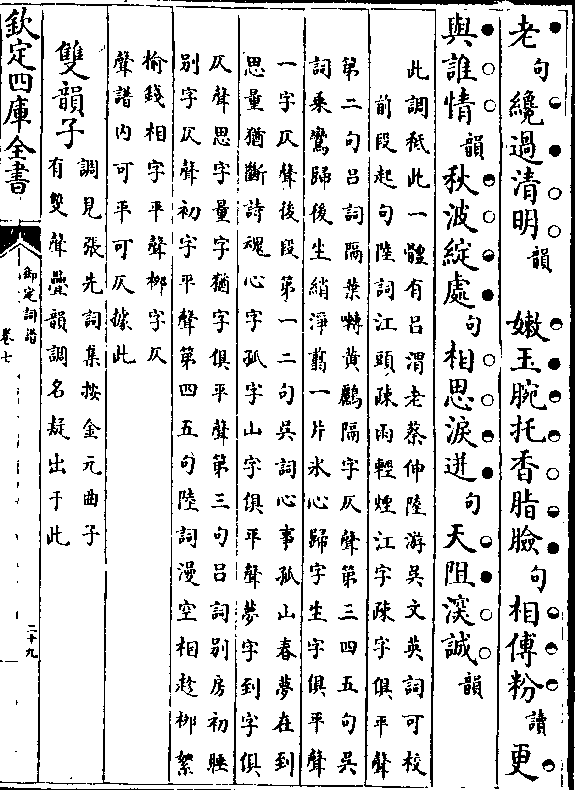 老句纔過清明韻　嫩玉腕托香脂臉句相傅粉讀更
與誰情韻秋波綻處句相思淚迸句天阻深誠韻
此調秪此一體有呂渭老蔡伸陸游吳文英詞可校
前段起句陸詞江頭疎雨輕煙江字疎字俱平聲
第二句呂詞隔葉囀黃鸝隔字仄聲第三四五句吳
詞乘鸞歸後生綃淨翦一片氷心歸字生字俱平聲
一字仄聲後段第一二句吳詞心事孤山春夢在到
思量猶斷詩魂心字孤字山字俱平聲夢字到字俱
仄聲思字量字猶字俱平聲第三句呂詞別房初睡
別字仄聲初字平聲第四五句陸詞漫空相趁柳絮
榆錢相字平聲柳字仄
聲譜內可平可仄據此
雙韻子
調見張先詞集按金元曲子
有雙聲疊韻調名疑出于此
欽定四庫全書
御定詞譜
卷七
二十九